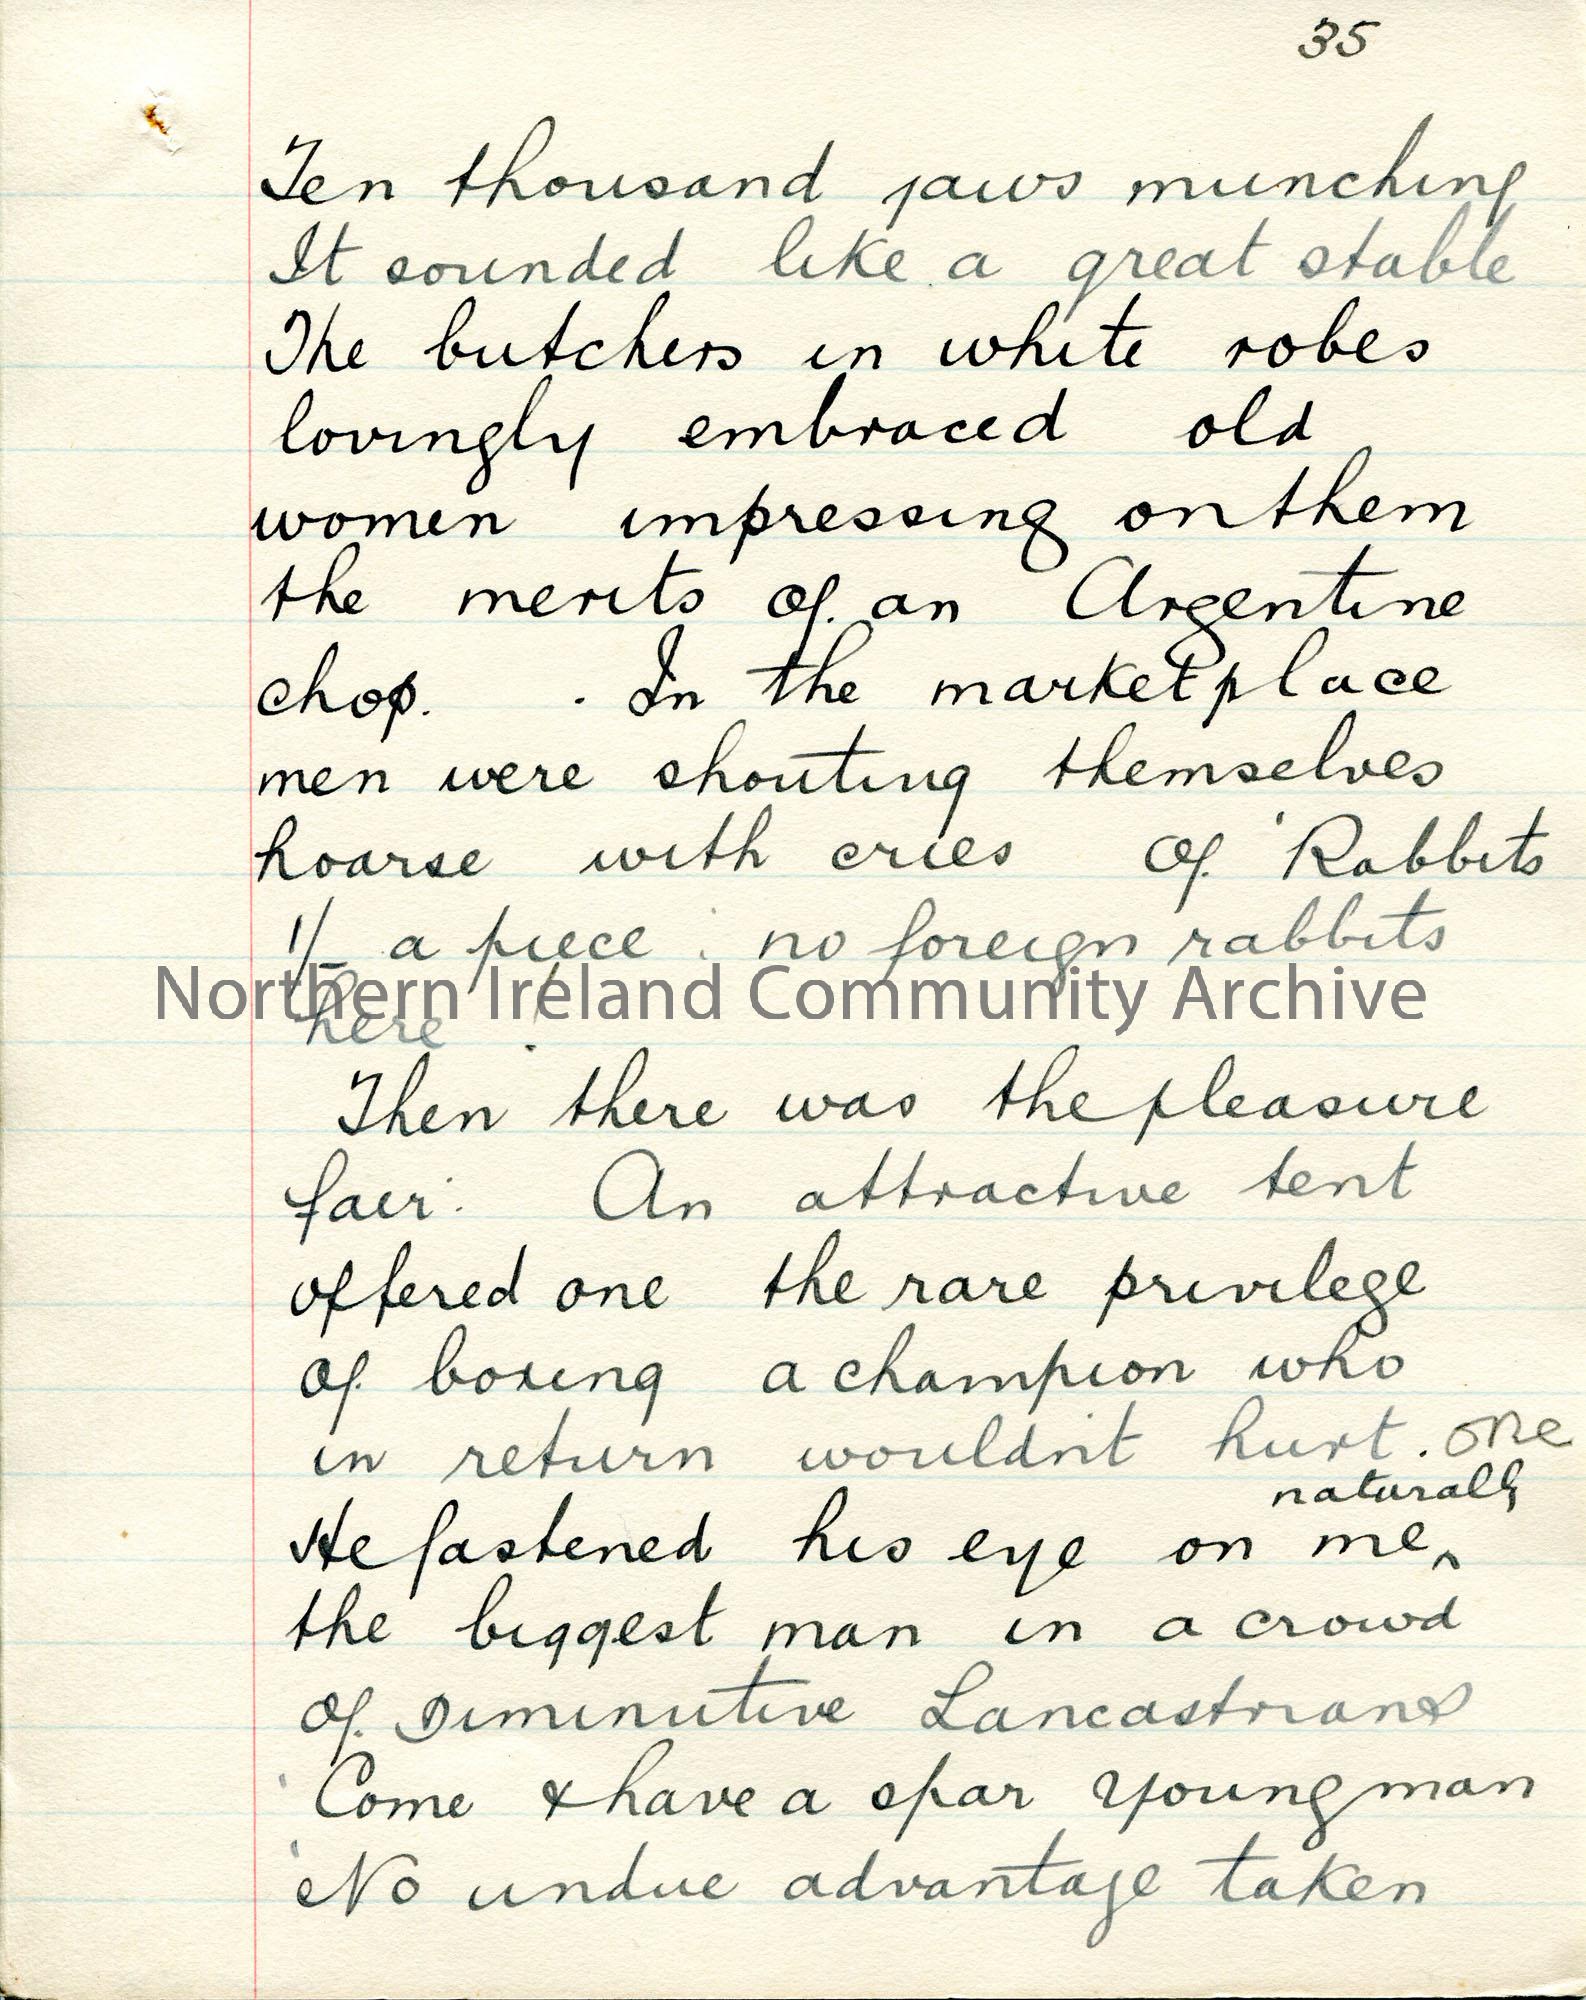 35
Ten thousand jaws munching
It sounded like a great stable
The butchers in white robes
lovingly embraced old
women impressing on them
the merits of an Argentine
chop. . In the marketplace
men were shouting themselves
hoarse with cries of 'Rabbits
1/- a piece : no foreign rabbits
here !
Northern Ireland Community Archive
Then there was the pleasure
fair. An attractive tent
offered one the rare privilege
of boxing a champion who
in return wouldn't hurt. one
naturally
He fastened his eye on me^
the biggest man in a crowd
of Diminutive Lancastrians
'Come & have a spar young man
'No undue advantage taken